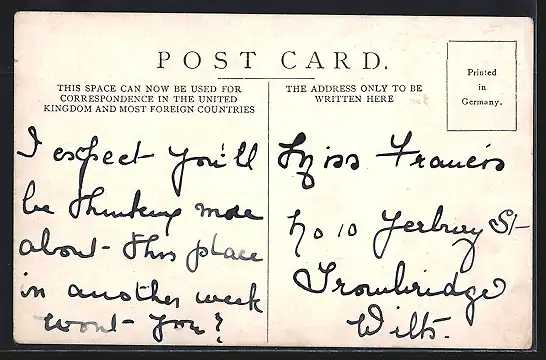 POST CARD.
THIS SPACE CAN NOW BE USED FOR
CORRESPONDENCE IN THE UNITED
KINGDOM AND MOST FOREIGN COUNTRIES
THE ADDRESS ONLY TO BE
WRITTEN HERE
Printed
in
Germany.
I expect you'll
be thinking more
about this place
in another week
wont you?
Miss Francis
No 10 Yerbury St
Trowbridge
Wilts.